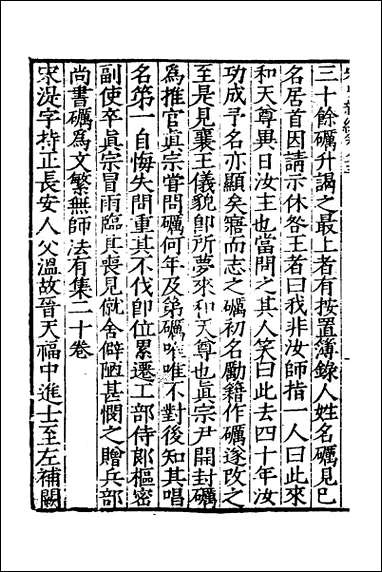 三十餘礪升謁之最上者有按置簿錄人姓名礪見已
名居首因請示休咎王者曰我非汝師指一人曰此來
和天尊異日汝主也當問之其人笑曰此去四十年汝
功成予名亦顯矣寤而志之礪初名勵籍作礪遂改之
至是見襄王儀貌卽所夢來和天尊也眞宗尹開封礪
爲推官眞宗嘗問礪何年及第礪唯唯不對後知其唱
名第一自悔失問重其不伐卽位累遷工部侍郎樞密
副使卒眞宗冒雨臨其喪見僦舍僻陋甚憫之贈兵部
尚書礪爲文繁無師法有集二十卷
宋湜字持正長安人父溫故晉天福中進士至左補闕